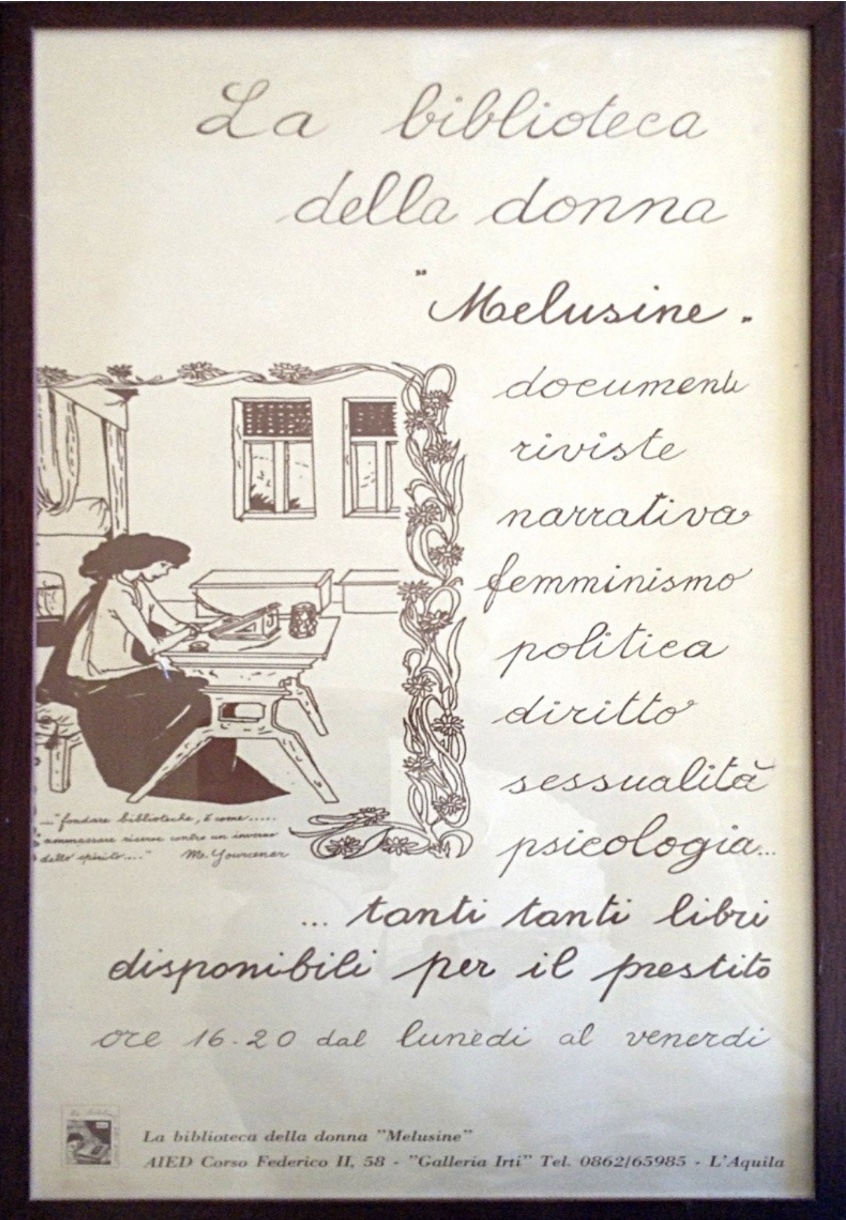 La biblioteca
della donna
"Melusine"
documenti
riviste
narrativa
femminismo
politica
diritto
sessualità
psicologia...
..."fondare biblioteche, è come.....
ammassare riserve contro un inverno
dello spirito...." M. Yourcenar
... tanti tanti libri
disponibili per il prestito
ore 16-20 dal lunedi al venerdi
La biblioteca della donna "Melusine"
AIED Corso Federico II, 58 - "Galleria Irti" Tel. 0862/65985 - L'Aquila